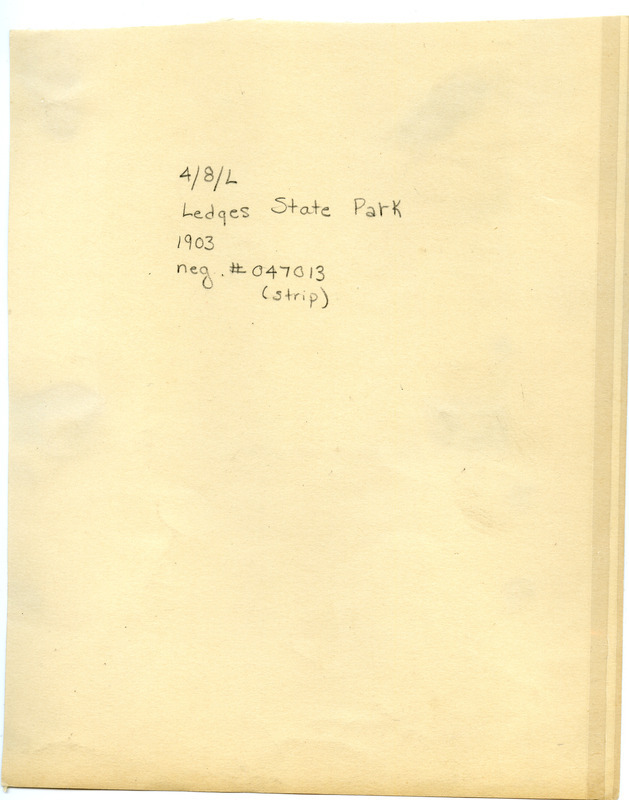 4/8/L
Ledges State Park
1903
neg. #047013
(strip)